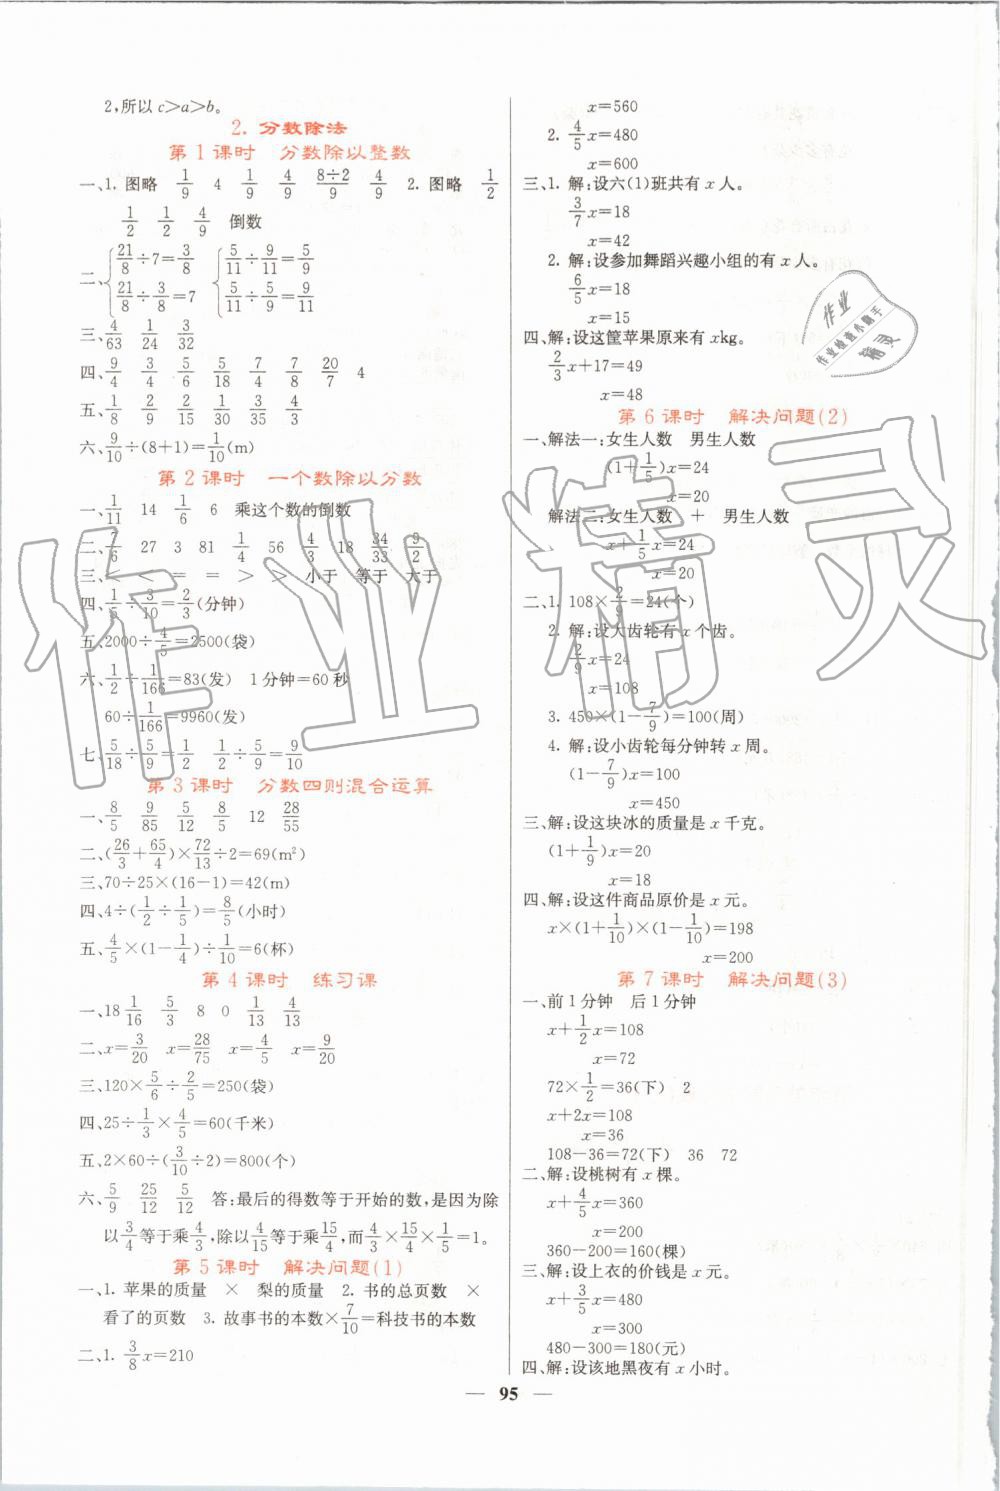 2,所以 c>a>b。
2. 分数除法
第 1 课时　分数除以整数
一、1. 图略　1/9　4　1/9　4/9　(8÷2)/9　4/9　2. 图略　1/2
1/2　1/2　4/9　倒数
二、{21/8÷7=3/8　{5/11÷9/11=5/9
21/8÷3/8=7　5/11÷5/9=9/11
三、4/63　1/24　3/32
四、9/4　3/4　5/6　5/18　7/4　7/8　20/7　4
五、1/8　2/9　2/15　1/30　3/35　4/3
六、9/10÷(8+1)=1/10(m)
第 2 课时　一个数除以分数
一、1/11　14　1/6　6　乘这个数的倒数
二、7/6　27　3　81　1/4　56　4/3　18　34/33　9/2
三、<　<　=　=　>　>　小于　等于　大于
四、1/5÷3/10=2/3(分钟)
五、2000÷4/5=2500(袋)
六、1/2÷1/166=83(发)　1分钟=60秒
60÷1/166=9960(发)
七、5/18÷5/9=1/2　1/2÷5/9=9/10
第 3 课时　分数四则混合运算
一、8/5　9/85　5/12　8/5　12　28/55
二、(26/3+65/4)×72/13÷2=69(m²)
三、70÷25×(16−1)=42(m)
四、4÷(1/2÷1/5)=8/5(小时)
五、4/5×(1−1/4)÷1/10=6(杯)
第 4 课时　练习课
一、18　1/16　5/3　8　0　1/13　4/13
二、x=3/20　x=28/75　x=4/5　x=9/20
三、120×5/6÷2/5=250(袋)
四、25÷1/3×4/5=60(千米)
五、2×60÷(3/10÷2)=800(个)
六、5/9　25/12　5/12　答:最后的得数等于开始的数,是因为除
以3/4等于乘4/3,除以4/15等于乘15/4,而4/3×15/4×1/5=1。
第 5 课时　解决问题(1)
一、1. 苹果的质量　×　梨的质量　2. 书的总页数　×
看了的页数　3. 故事书的本数×7/10=科技书的本数
二、1. 3/8x=210
x=560
2. 4/5x=480
x=600
三、1. 解:设六(1)班共有 x 人。
3/7x=18
x=42
2. 解:设参加舞蹈兴趣小组的有 x 人。
6/5x=18
x=15
四、解:设这筐苹果原来有 xkg。
2/3x+17=49
x=48
第 6 课时　解决问题(2)
一、解法一:女生人数　男生人数
(1+1/5)x=24
x=20
解法二:女生人数　+　男生人数
x+1/5x=24
x=20
二、1. 108×2/9=24(个)
2. 解:设大齿轮有 x 个齿。
2/9x=24
x=108
3. 450×(1−7/9)=100(周)
4. 解:设小齿轮每分钟转 x 周。
(1−7/9)x=100
x=450
三、解:设这块冰的质量是 x 千克。
(1+1/9)x=20
x=18
四、解:设这件商品原价是 x 元。
x×(1+1/10)×(1−1/10)=198
x=200
第 7 课时　解决问题(3)
一、前 1 分钟　后 1 分钟
x+1/2x=108
x=72
72×1/2=36(下)　2
x+2x=108
x=36
108−36=72(下)　36　72
二、解:设桃树有 x 棵。
x+4/5x=360
x=200
360−200=160(棵)
三、解:设上衣的价钱是 x 元。
x+3/5x=480
x=300
480−300=180(元)
四、解:设该地黑夜有 x 小时。
— 95 —
作业精灵
作业
作业检查小助手
精灵